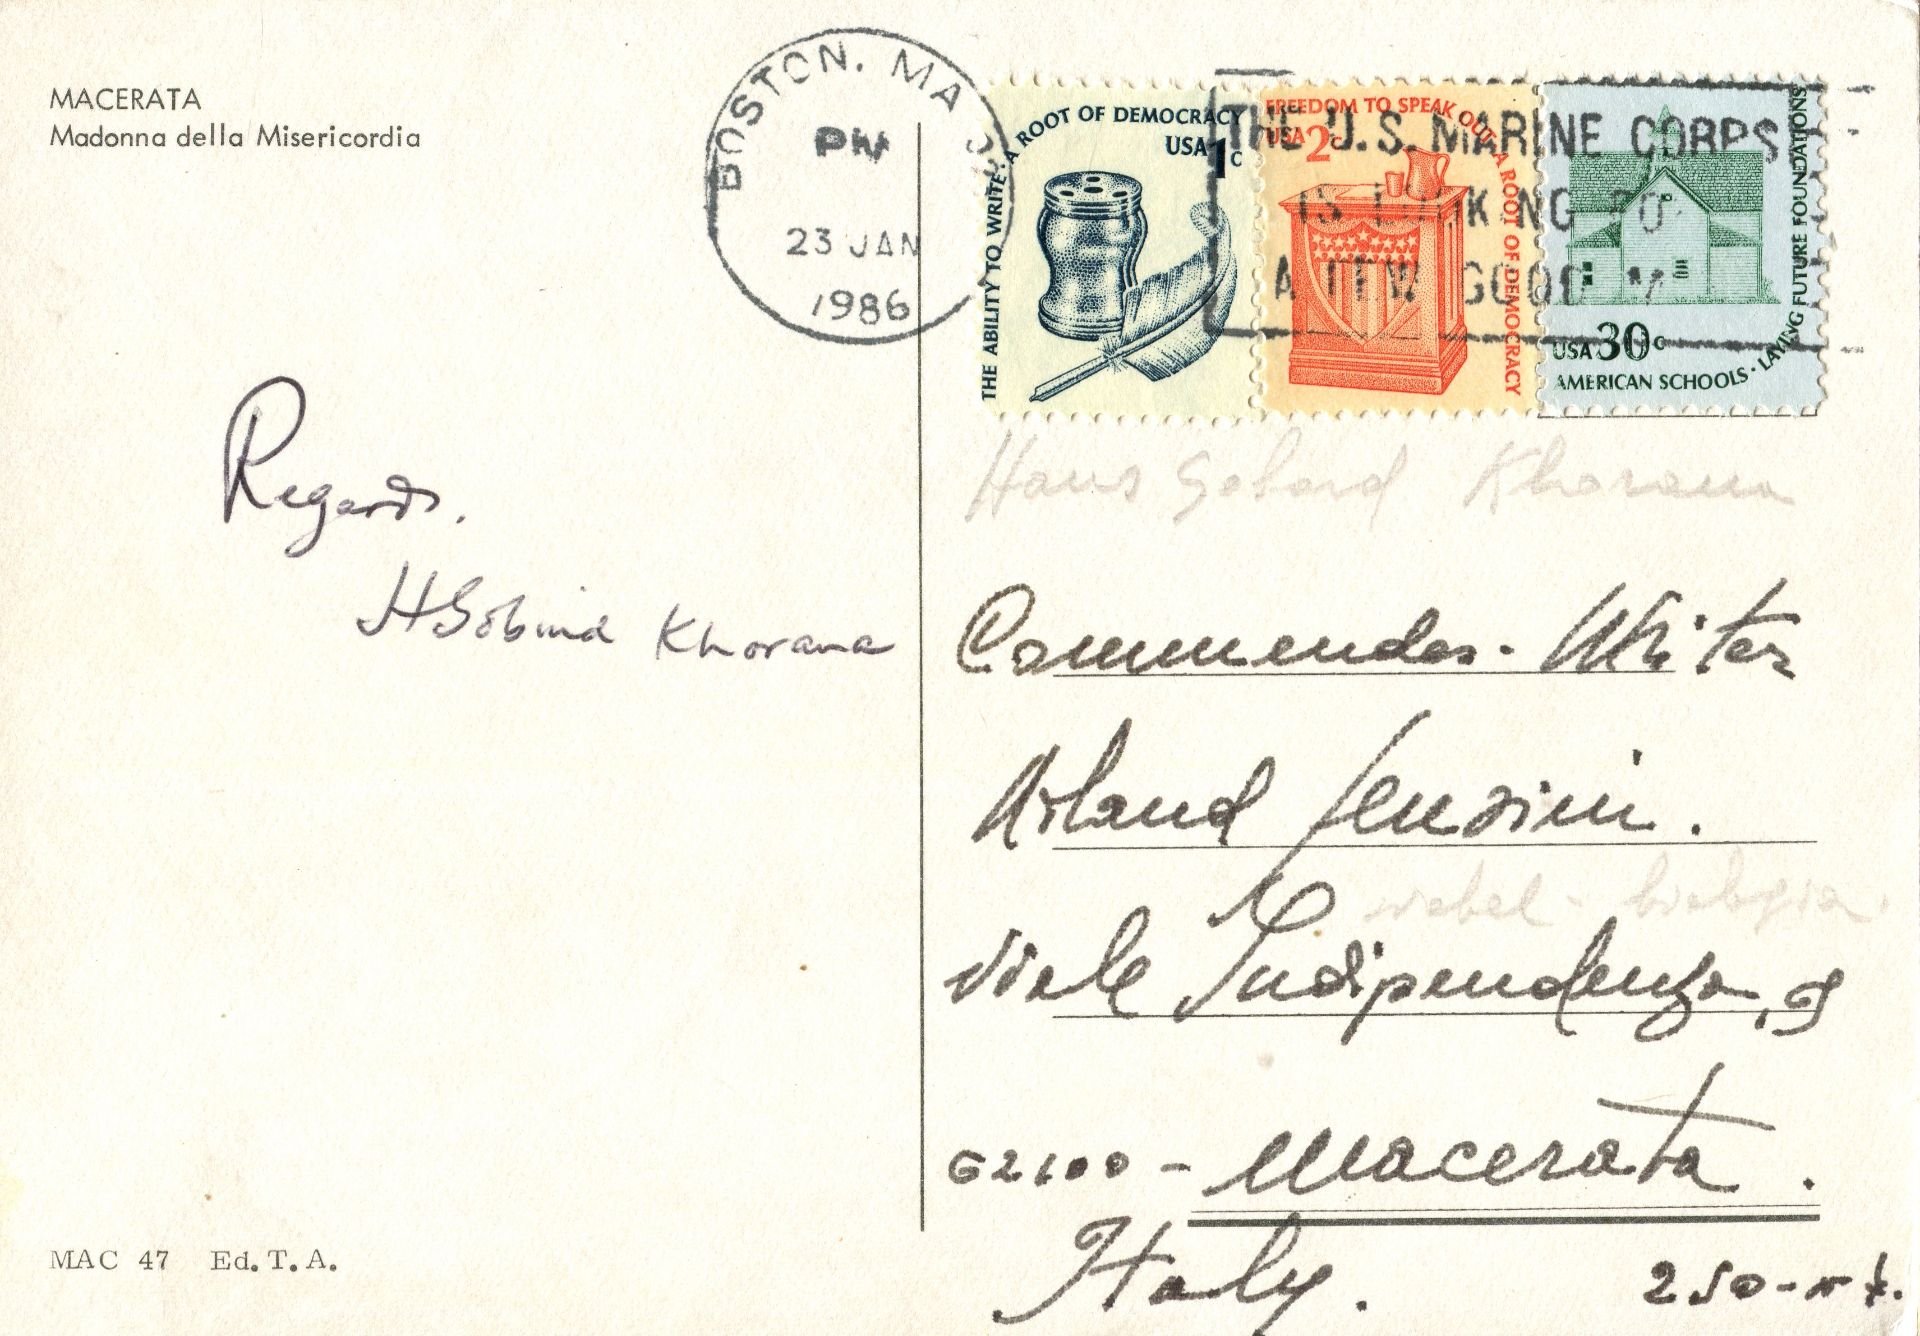 MACERATA
Madonna della Misericordia
BOSTON, MA
PM
23 JAN
1986
THE ABILITY TO WRITE. A ROOT OF DEMOCRACY
USA 1c
FREEDOM TO SPEAK OUT A ROOT OF DEMOCRACY
USA 2c
USA 30c
AMERICAN SCHOOLS · LAYING FUTURE FOUNDATIONS
THE U.S. MARINE CORPS
IS LOOKING FO
A FEW GOOD M
Regards.
HGobind Khorana
Hans Gobind Khorana
Commendar.
Arland
Viale Indipendenza,
62100 - Macerata.
Italy.
MAC 47 Ed. T. A.